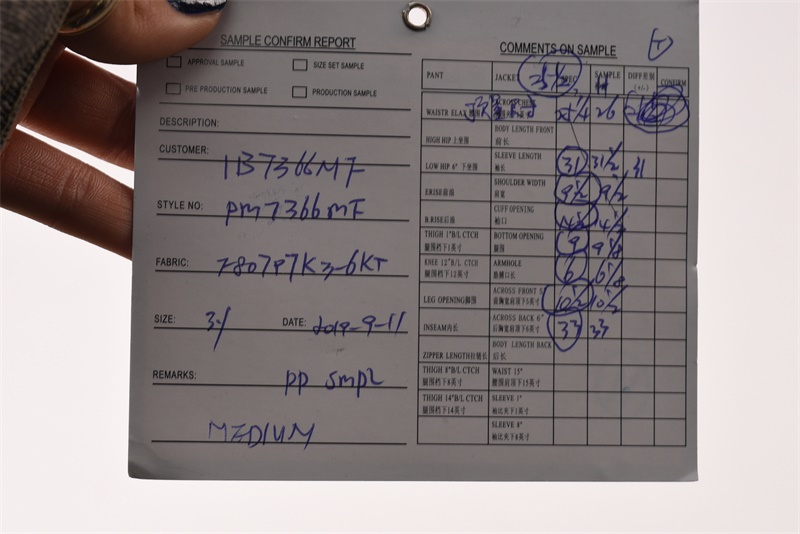 SAMPLE CONFIRM REPORT
APPROVAL SAMPLE SIZE SET SAMPLE
PRE PRODUCTION SAMPLE PRODUCTION SAMPLE
DESCRIPTION:
CUSTOMER: 1B7366MF
STYLE NO: PM7366MF
FABRIC: 7807P7K3-6KT
SIZE: 31 DATE: 2019-9-11
REMARKS: PP smpl
MEDIUM
COMMENTS ON SAMPLE
PANT JACKET SPEC SAMPLE DIFF差别 (+/-) CONFIRM
WAISTR ELAX 26
HIGH HIP 上坐围 BODY LENGTH FRONT 前长
LOW HIP 6" 下坐围 SLEEVE LENGTH 袖长 31 31 1/2
F.RISE前浪 SHOULDER WIDTH 肩宽 9 1/2 9 1/2
B.RISE后浪 CUFF OPENING 袖口
THIGH 1"B/L CTCH 腿围档下1英寸 BOTTOM OPENING 9 9 1/8
KNEE 12"B/L CTCH 腿围档下12英寸 ARMHOLE 6 6 1/8
LEG OPENING脚围 ACROSS FRONT 5" 前胸宽肩顶下5英寸 10 1/2 10 1/2
INSEAM内长 ACROSS BACK 6" 后胸宽肩顶下6英寸 33 33
ZIPPER LENGTH拉链长 BODY LENGTH BACK 后长
THIGH 8"B/L CTCH 腿围档下8英寸 WAIST 15" 腰围肩顶下15英寸
THIGH 14"B/L CTCH 腿围档下14英寸 SLEEVE 1" 袖比夹下1英寸
SLEEVE 8" 袖比夹下8英寸